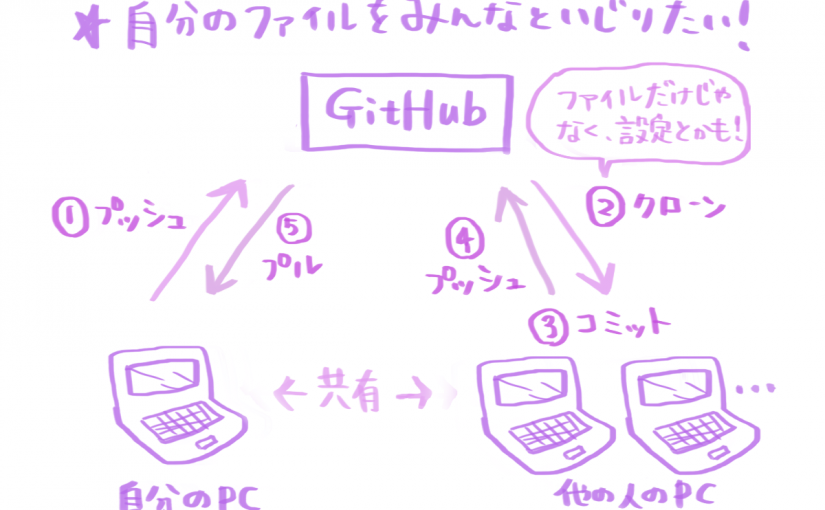 * 自分のファイルをみんなといじりたい!
GitHub
ファイルだけじゃ
なく、設定とかも!
①プッシュ
⑤
プル
④
プッシュ
②クローン
③コミット
←共有→
...
自分のPC
他の人のPC